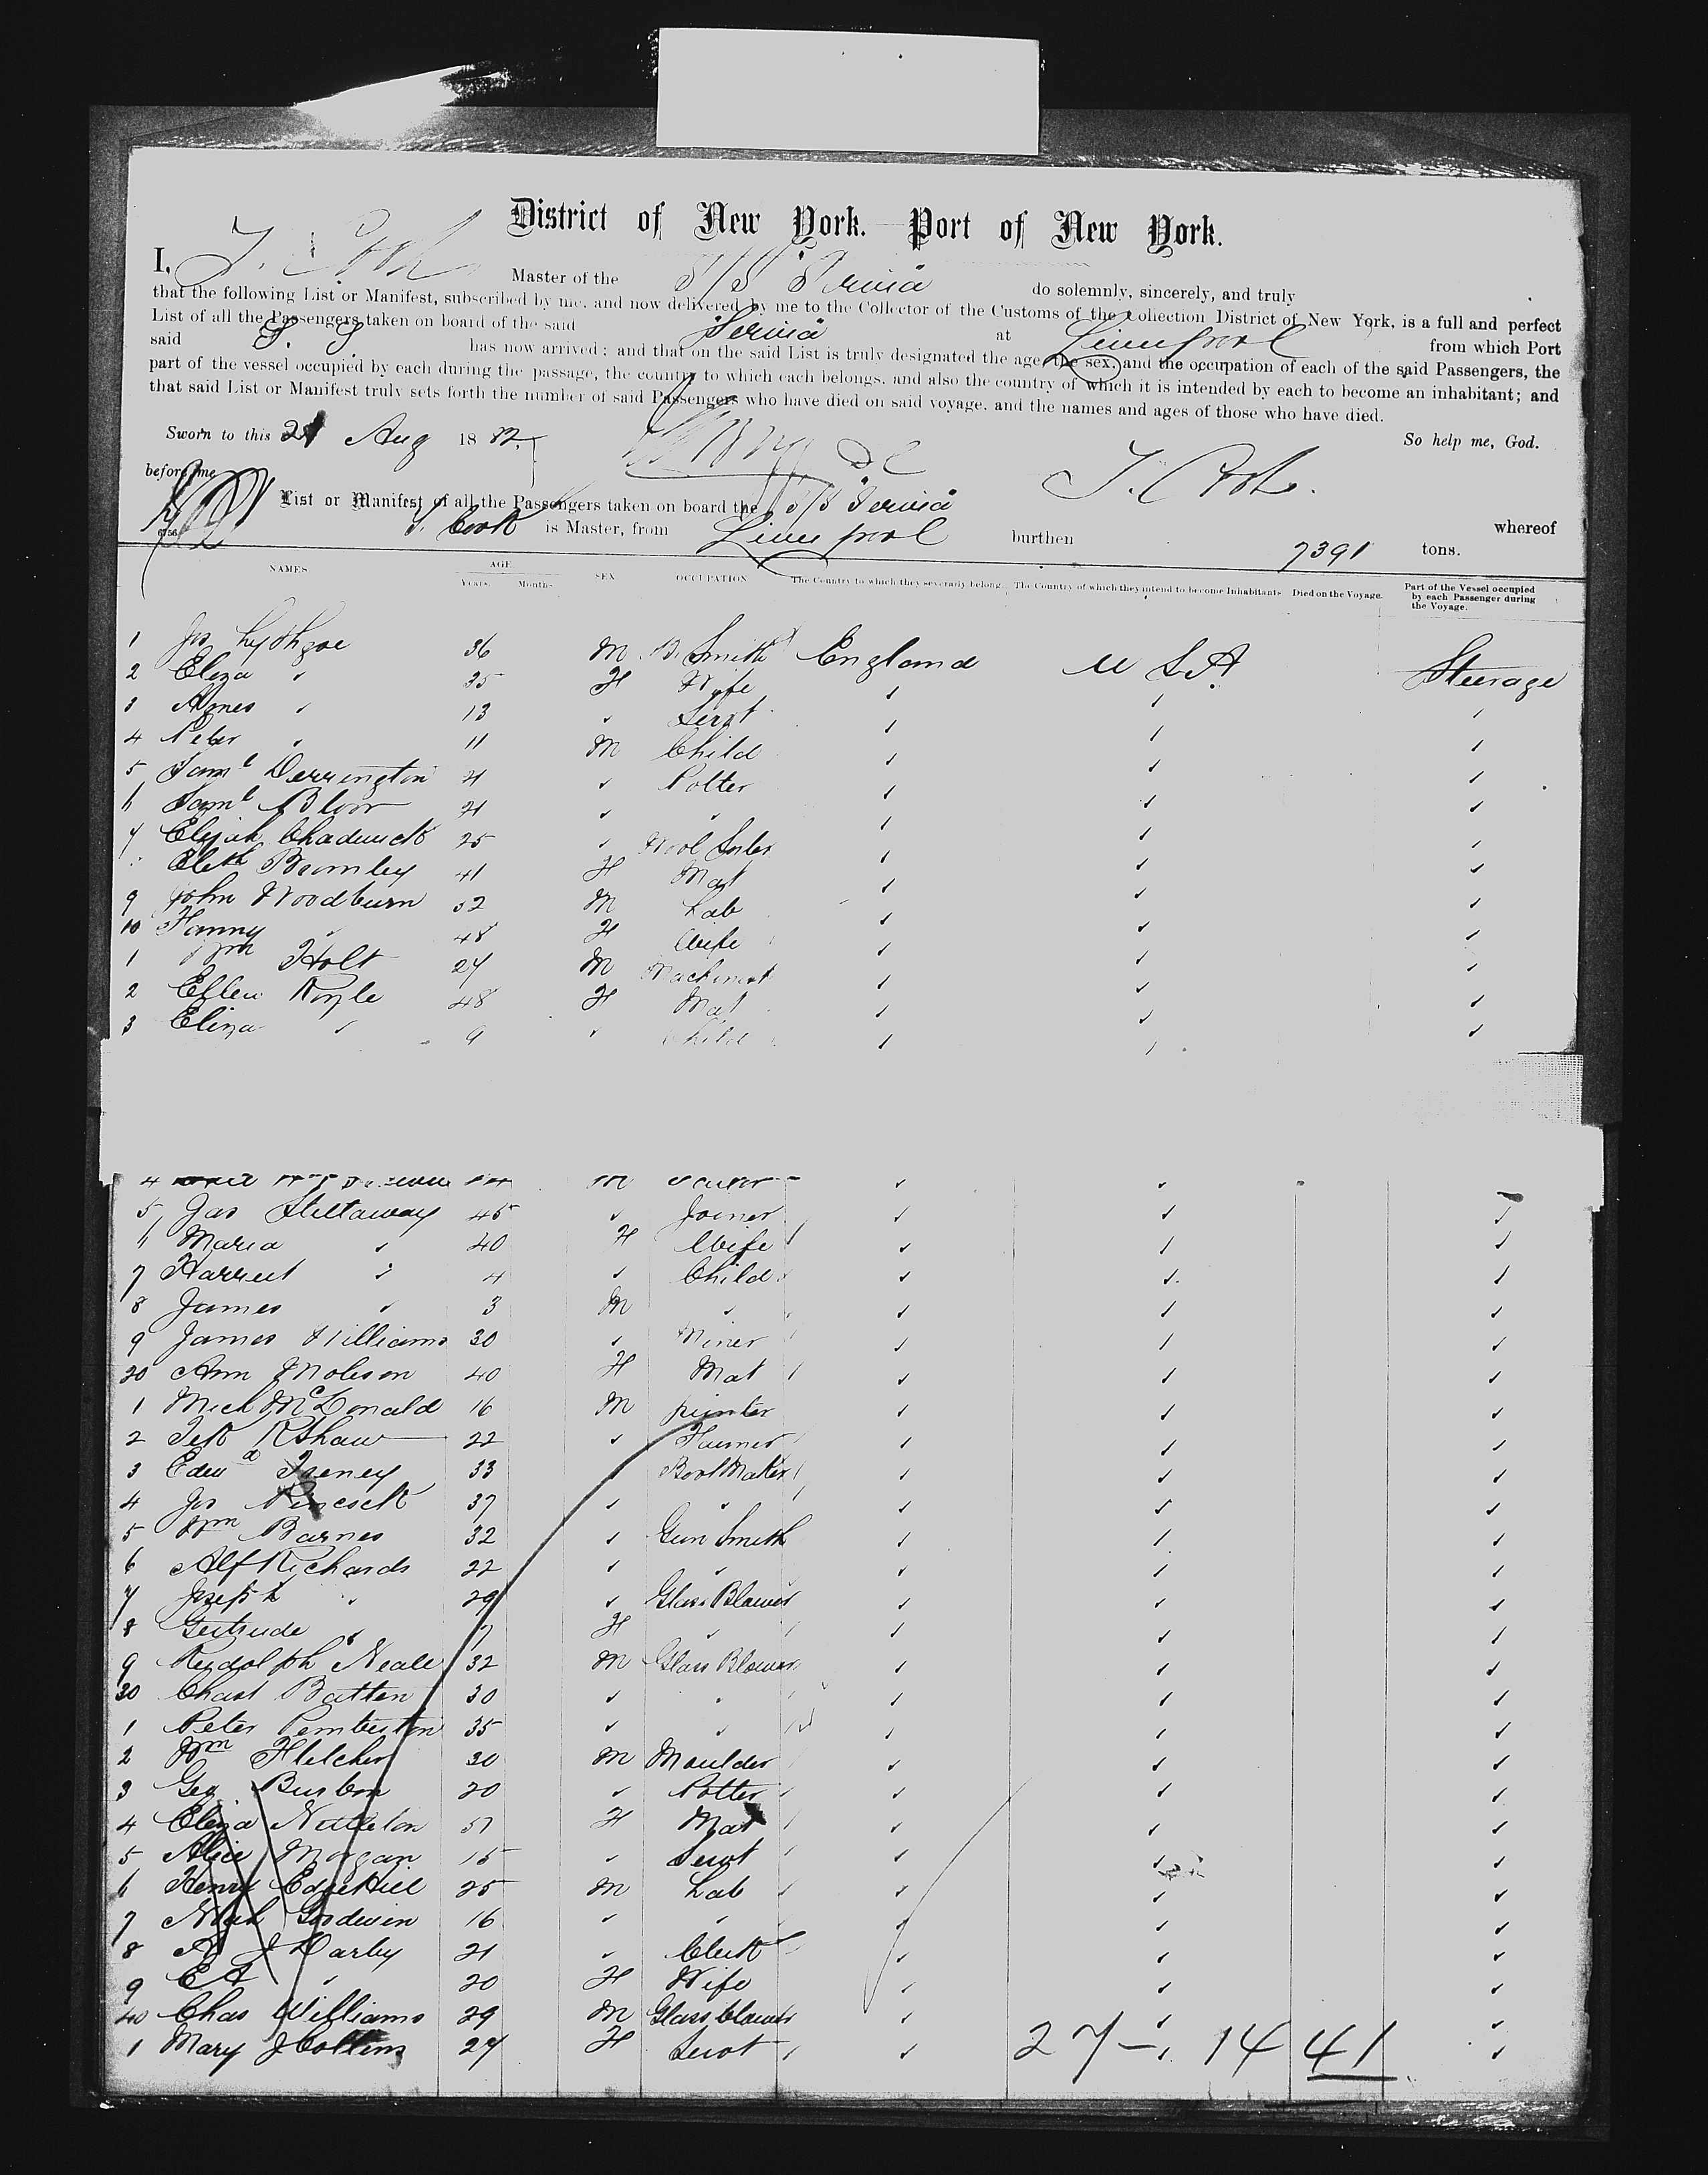 District of New York. Port of New York.
I, T. Cook Master of the S/S "Servia" do solemnly, sincerely, and truly
that the following List or Manifest, subscribed by me, and now delivered by me to the Collector of the Customs of the Collection District of New York, is a full and perfect
List of all the Passengers taken on board of the said "Servia" at Liverpool from which Port
said S. S. has now arrived; and that on the said List is truly designated the age, the sex, and the occupation of each of the said Passengers, the
part of the vessel occupied by each during the passage, the country to which each belongs, and also the country of which it is intended by each to become an inhabitant; and
that said List or Manifest truly sets forth the number of said Passengers who have died on said voyage, and the names and ages of those who have died.
Sworn to this 21 Aug 1882. So help me, God.
before me T. Cook.
List or Manifest of all the Passengers taken on board the S/S "Servia" whereof
T. Cook is Master, from Liverpool burthen 7391 tons.
NAMES AGE Years. Months. SEX OCCUPATION The Country to which they severally belong. The Country of which they intend to become Inhabitants Died on the Voyage. Part of the Vessel occupied by each Passenger during the Voyage.
1 Jos Lythgoe 36 M B. Smith England U S A. Steerage
2 Eliza " 35 F Wife
3 Agnes " 13 " Servt
4 Peter " 11 M Child
5 Saml Derrington 21 " Potter
6 Saml Bloor 21 " "
7 Elijah Chadwick 25 " Wool Sorter
Elizth Bromley 41 F Mat
9 John Woodburn 52 M Lab
10 Fanny " 48 F Wife
1 Wm Holt 27 M Machinist
2 Ellen Royle 48 F Mat
3 Eliza " 9 " Child
4 M
5 Jas Stillaway 45 " Joiner
6 Maria " 40 F Wife
7 Harriet " 4 " Child
8 James " 3 M "
9 James Williams 30 " Miner
20 Ann Moleson 40 F Mat
1 Mich McDonald 16 M printer
2 Shaw 22 " Farmer
3 Edwd 33 " Boot Maker
4 Jos 37 " "
5 Wm Barnes 32 " Gun Smith
6 Alf Richards 22 " "
7 Joseph " 29 " Glass Blower
8 Gertrude " 7 F "
9 Rudolph Neale 32 M Glass Blower
30 Chast Batten 30 " "
1 Peter Pemberton 35 " "
2 Wm Fletcher 30 M Moulder
3 Geo Burton 20 " Potter
4 Eliza Nettleton 51 F Mat
5 Alice Morgan 15 " Servt
6 Henry Edge Hill 25 M Lab
7 Noah Goodwin 16 " "
8 J Darby 21 " Clerk
9 E A " 20 F Wife
40 Chas Williams 29 M Glass blower
1 Mary J Collins 27 F Servt
27 - 14 41